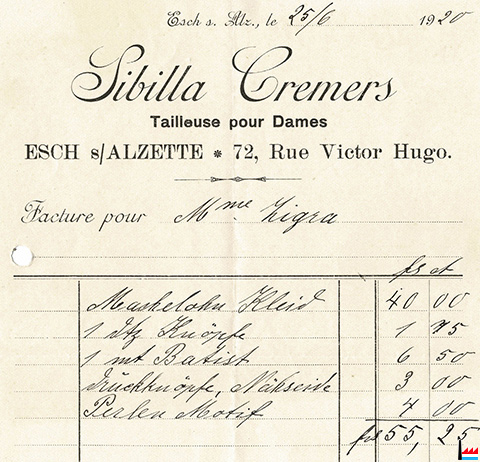 Esch s. Alz., le 25/6 1920
Sibilla Cremers
Tailleuse pour Dames
ESCH s/ALZETTE * 72, Rue Victor Hugo.
Facture pour Mme Zigra
frs ct
Maskelohn Kleid 40 00
1 dtz Knöpfe 1 75
1 mt Batist 6 50
Drückknöpfe, Nähseide 3 00
Perlen Motif 4 00
frs 55, 25